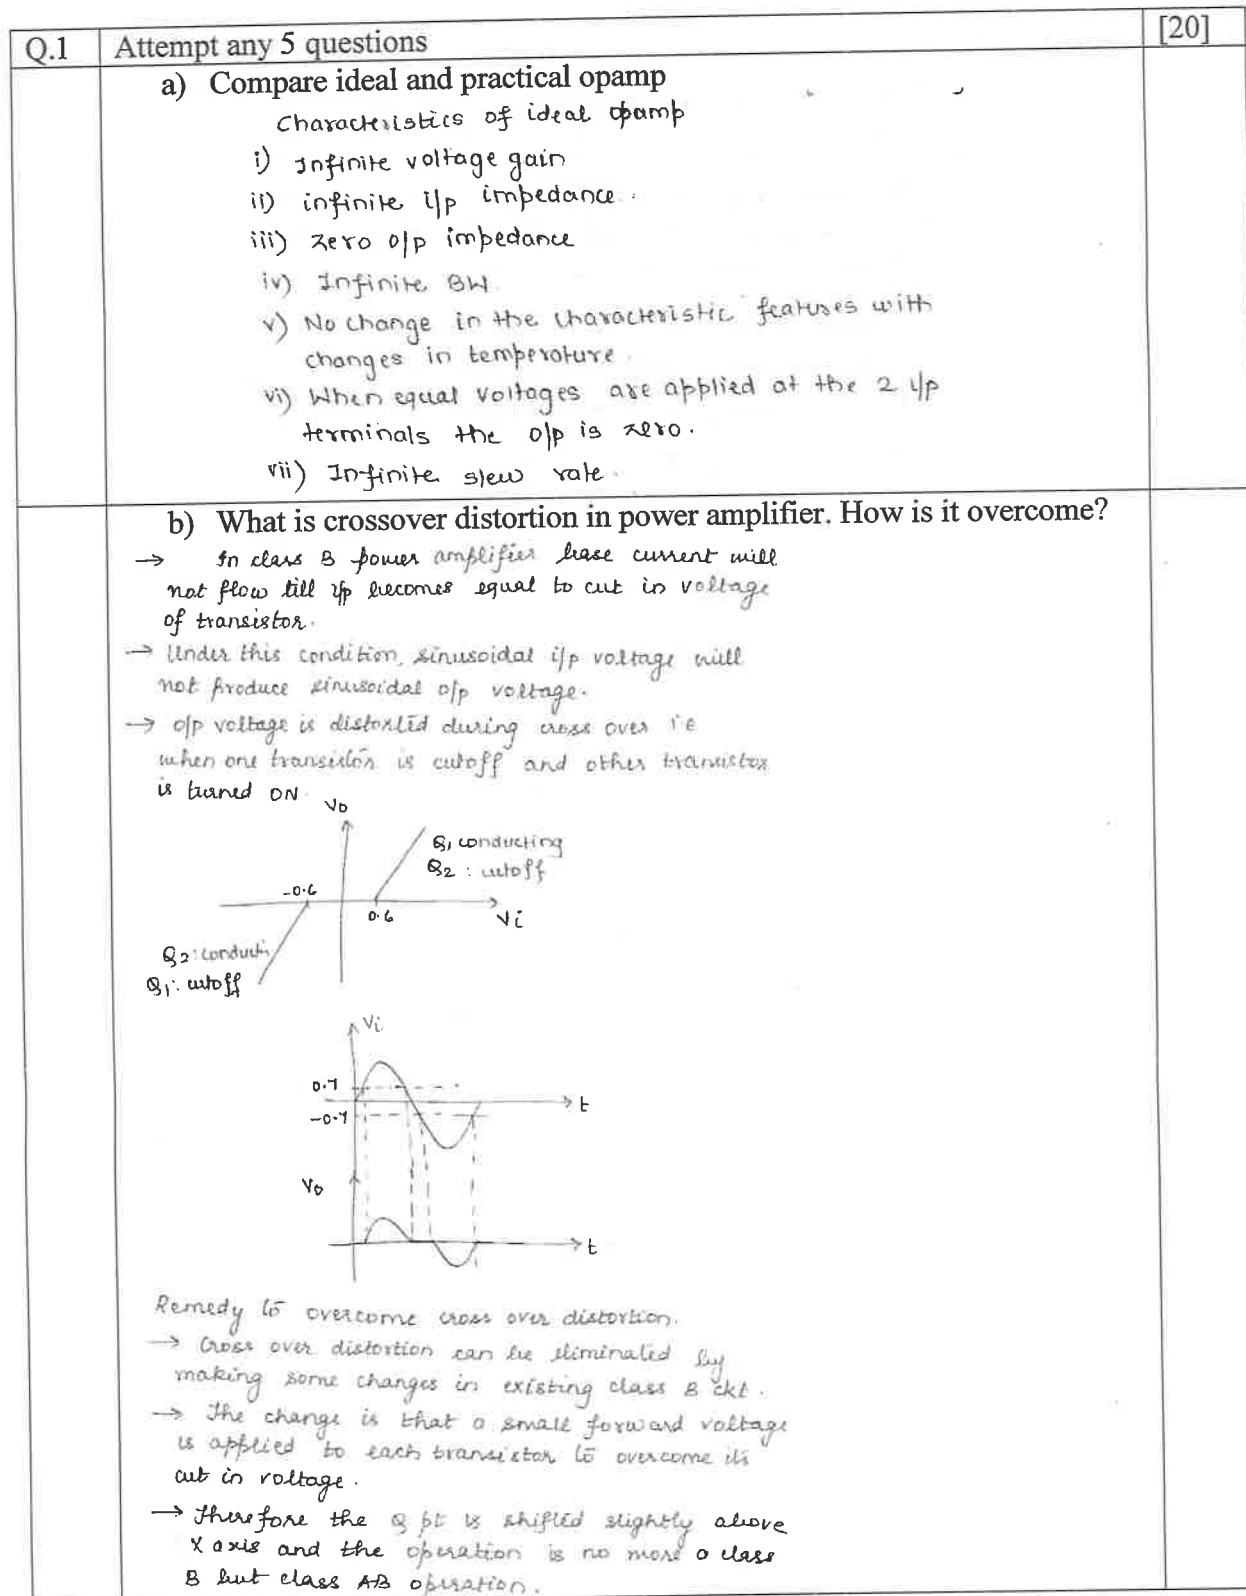 Q.1 Attempt any 5 questions [20]
a) Compare ideal and practical opamp
Characteristics of ideal opamp
i) Infinite voltage gain
ii) infinite i/p impedance.
iii) zero o/p impedance
iv) Infinite BW.
v) No change in the characteristic features with
changes in temperature.
vi) When equal voltages are applied at the 2 i/p
terminals the o/p is zero.
vii) Infinite slew rate.
b) What is crossover distortion in power amplifier. How is it overcome?
→ In class B power amplifier base current will
not flow till i/p becomes equal to cut in voltage
of transistor.
→ Under this condition, sinusoidal i/p voltage will
not produce sinusoidal o/p voltage.
→ o/p voltage is distorted during cross over i.e
when one transistor is cutoff and other transistor
is turned ON.
Vo
Q1 conducting
Q2 : cutoff
-0.6
0.6
Vi
Q2: conducti
Q1: cutoff
Vi
0.7
t
-0.7
Vo
t
Remedy to overcome cross over distortion.
→ Cross over distortion can be eliminated by
making some changes in existing class B ckt.
→ The change is that a small forward voltage
is applied to each transistor to overcome its
cut in voltage.
→ Therefore the Q pt is shifted slightly above
X axis and the operation is no more a class
B but class AB operation.